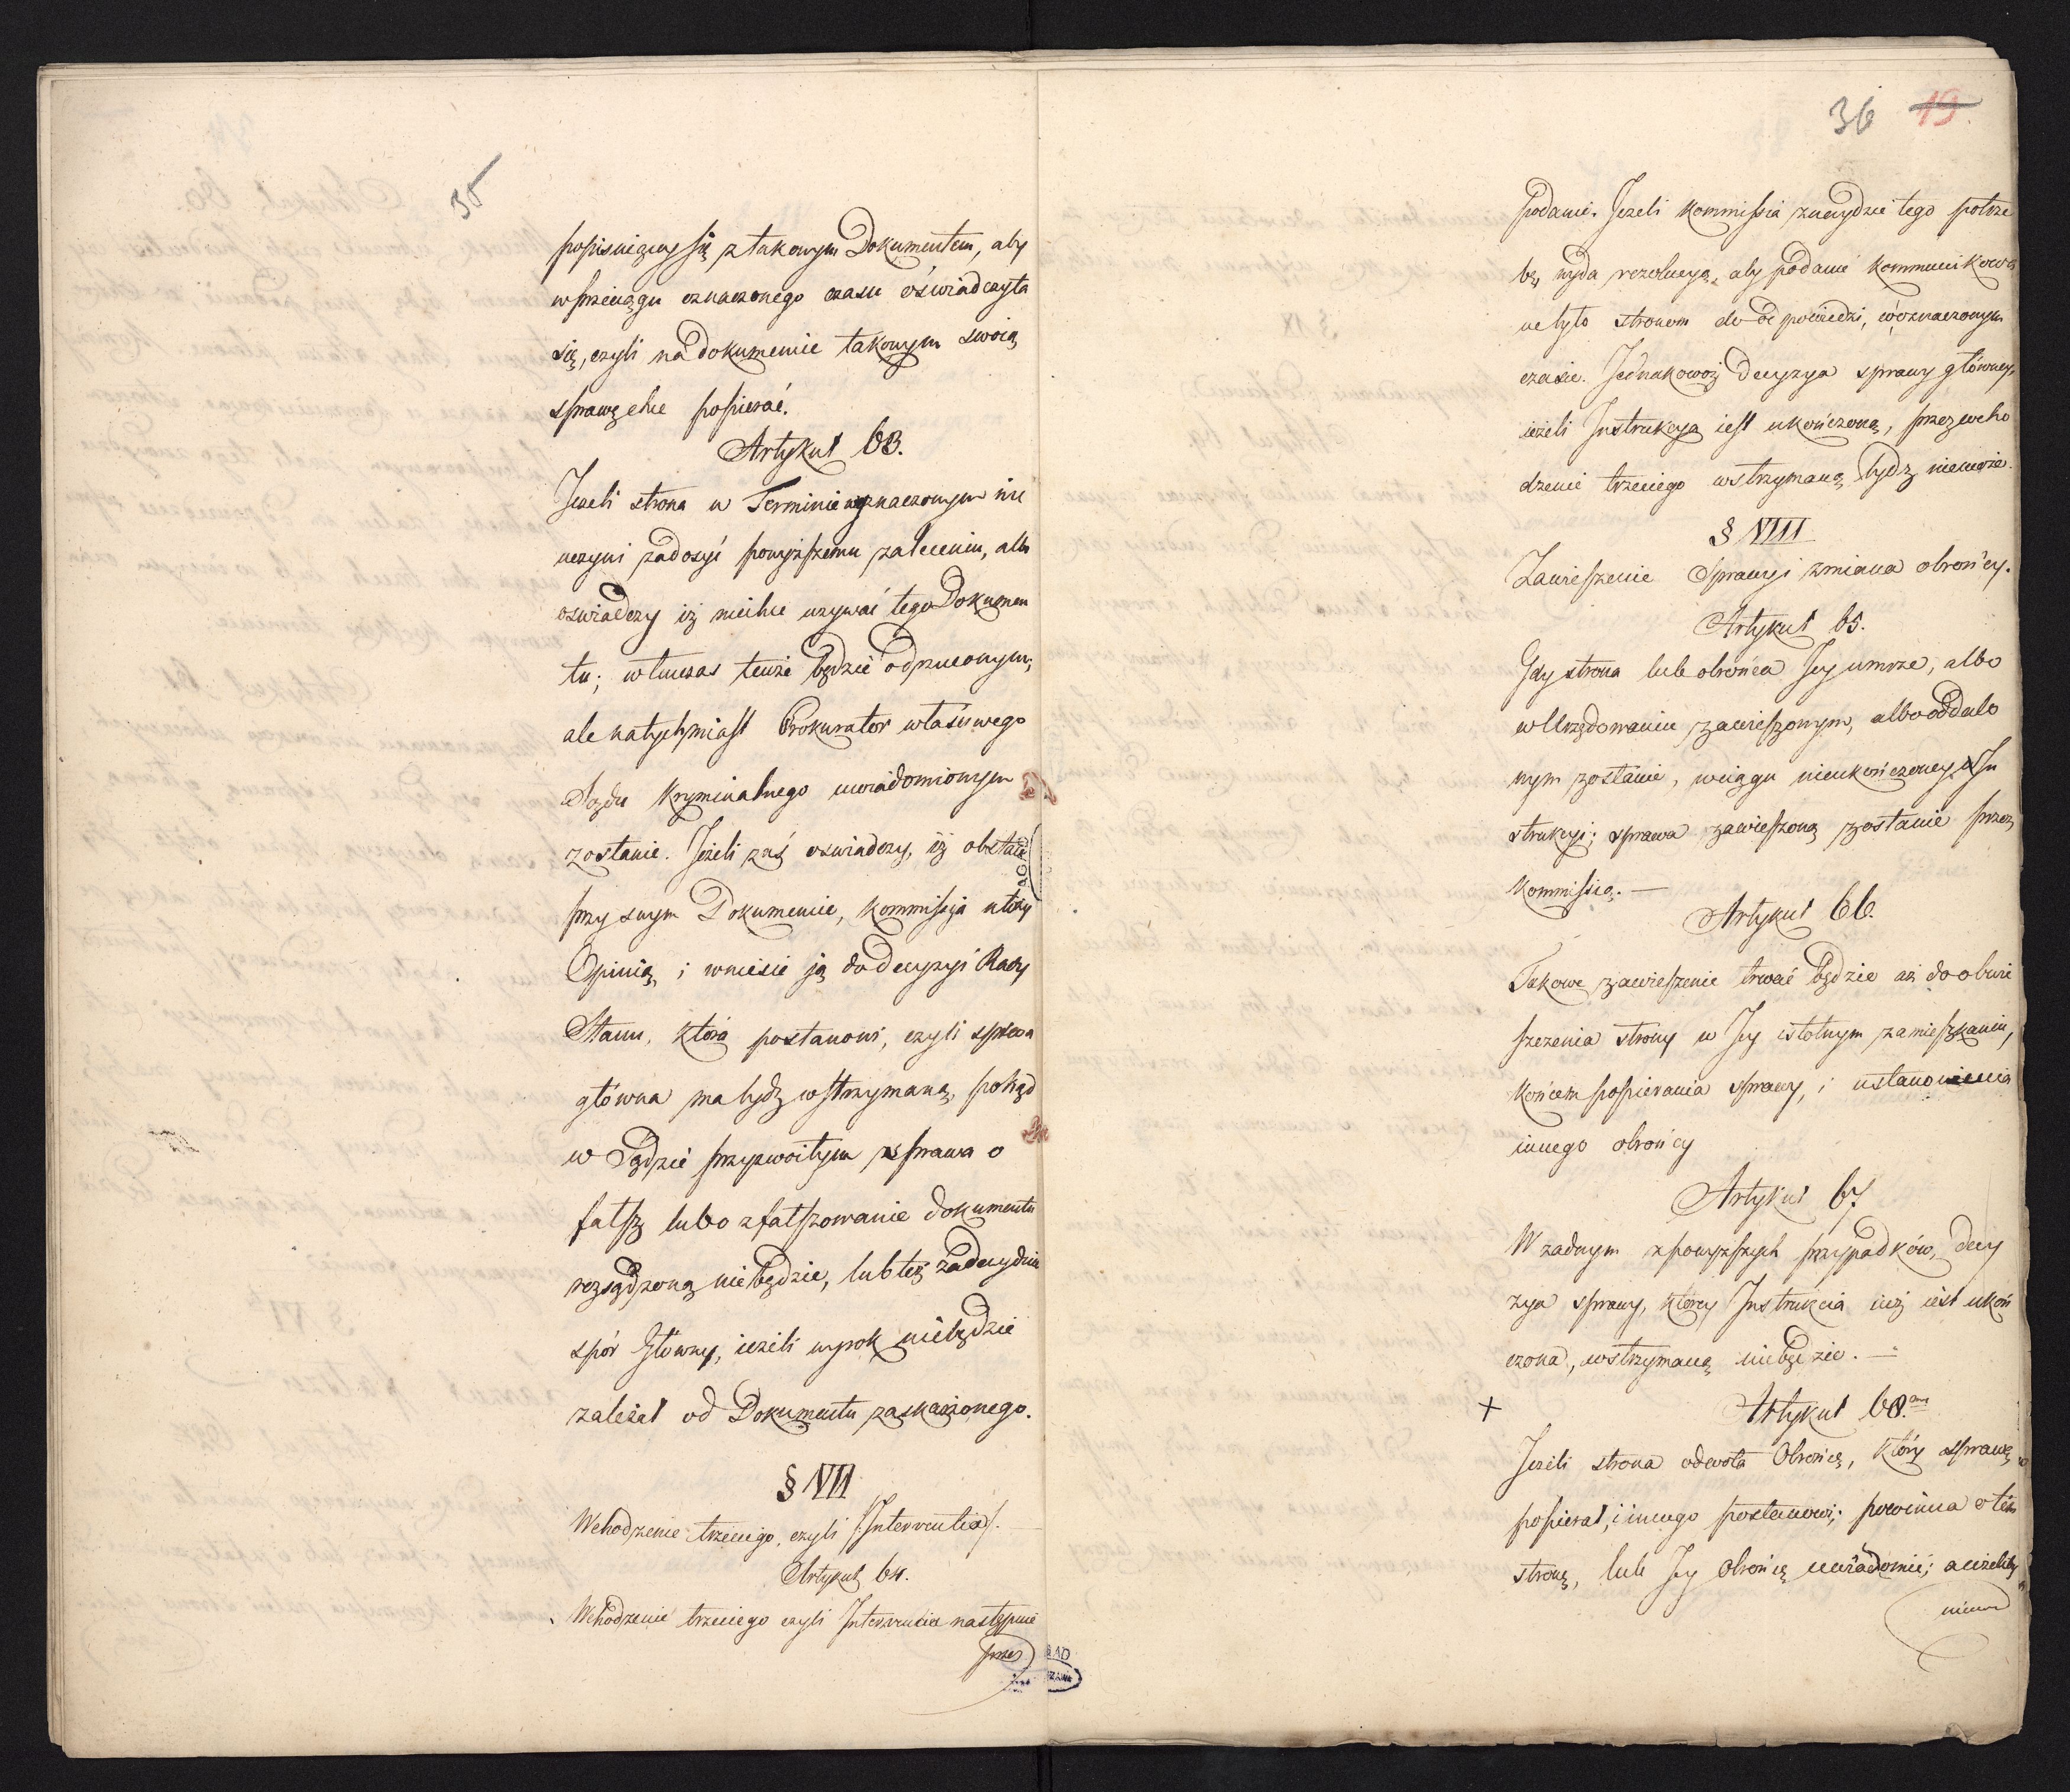 35
popisuiący się z takowym Dokumentem, aby
w przeciągu oznaczonego czasu oświadczyła
się, czyli na dokumencie takowym swoią
sprawę chce popierać.
Artykuł 63.
Jeżeli strona w Terminie wyznaczonym nie
uczyni zadosyć powyższemu zaleceniu, albo
oświadczy iż niechce używać tego Dokumen
tu; w tenczas tenże będzie odrzuconym;
ale natychmiast Prokurator właściwego
Sądu Kryminalnego uwiadomionym
zostanie. Jeżeli zaś oświadczy, iż obstaie
przy swym Dokumencie, Kommissya ułoży
Opinią, i wniesie ją do decyzyi Rady
Stanu, która postanowi, czyli sprawa
główna ma bydź wstrzymaną, pokąd
w Sądzie przyzwoitym sprawa o
fałsz lub o zfałszowanie dokumentu
rozsądzoną nie będzie, lub też zadecyduie
spór Główny, ieżeli wyrok niebędzie
zależał od Dokumentu zaskarżonego.
§ VII
Wchodzenie trzeciego, czyli /:Interventia:/.
Artykuł 64.
Wchodzenie trzeciego czyli Interwencia nastąpi
przez
36 19.
Podanie. Jeżeli Kommissia znaydzie tego potrze
bę, wyda rezolucyą, aby podanie kommunikowa
ne było stronom do odpowiedzi, w oznaczonym
czasie. Jednakowoż Decyzya sprawy główney,
ieżeli Instrukcya iest ukończoną, przez wcho
dzenie trzeciego wstrzymaną bydź niemoże.
§ VIII
Zawieszenie Sprawy i zmiana obrońcy.
Artykuł 65.
Gdy strona lub obrońca Jey umrze, albo
w Urzędowaniu zawieszonym, albo oddalo
nym zostanie, w ciągu nieukończoney In
strukcyi; sprawa zawieszoną zostanie przez
Kommissią. —
Artykuł 66.
Takowe zawieszenie trwać będzie aż do obwie
szczenia strony w Jey istotnym zamieszkaniu,
końcem popierania sprawy, i ustanowienia
innego obrońcy
Artykuł 67.
W żadnym z powyższych przypadków, decy
zya sprawy, którey Instrukcia iuż iest ukoń
czona, wstrzymaną niebędzie. —
+ Artykuł 68.
Jeżeli strona odwoła Obrońcę, który sprawę
popierał, i innego postanowi; powinna o tém
stronę, lub Jey Obrońcę uwiadomić; a ieżeliby